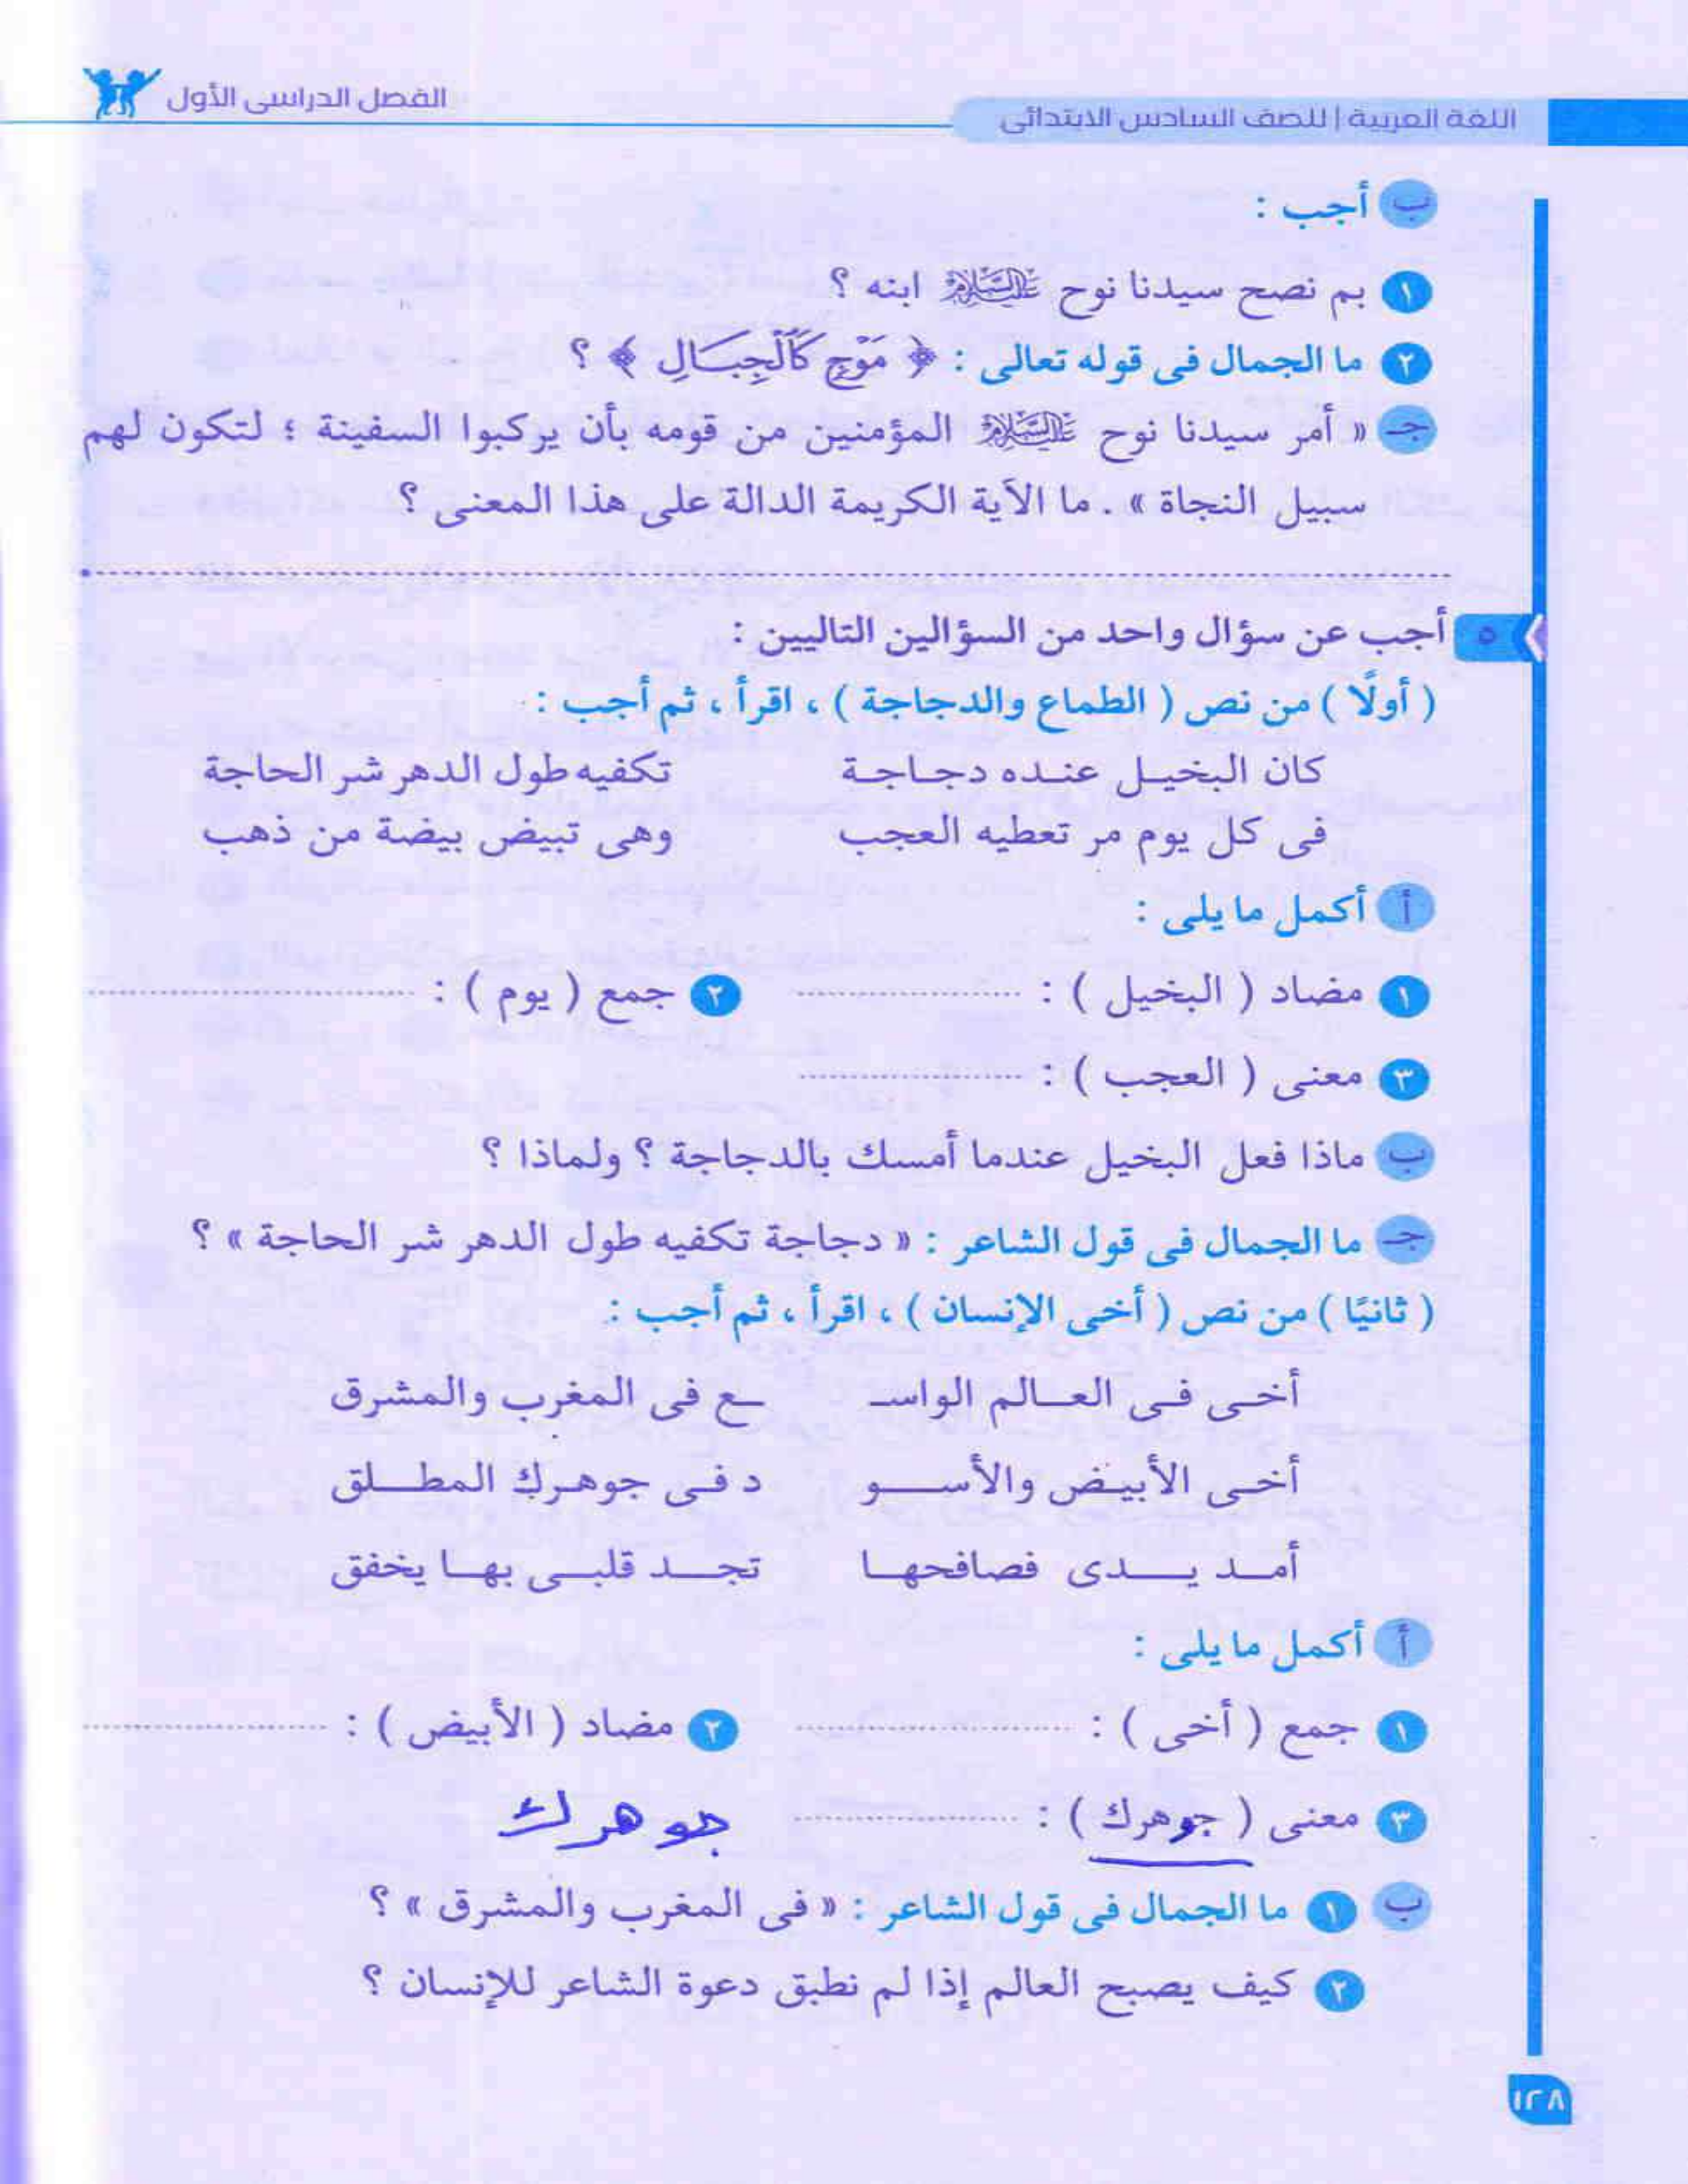 اللغة العربية | للصف السادس الابتدائى
الفصل الدراسى الأول
ب أجب :
١ بم نصح سيدنا نوح عَلَيْهِ السَّلَامُ ابنه ؟
٢ ما الجمال فى قوله تعالى : ﴿ مَوْجٍ كَالْجِبَالِ ﴾ ؟
جـ « أمر سيدنا نوح عَلَيْهِ السَّلَامُ المؤمنين من قومه بأن يركبوا السفينة ؛ لتكون لهم
سبيل النجاة » . ما الآية الكريمة الدالة على هذا المعنى ؟
٥ أجب عن سؤال واحد من السؤالين التاليين :
( أولًا ) من نص ( الطماع والدجاجة ) ، اقرأ ، ثم أجب :
كان البخيـل عنـده دجـاجـة تكفيه طول الدهر شر الحاجة
فى كل يوم مر تعطيه العجب وهى تبيض بيضة من ذهب
أ أكمل ما يلى :
١ مضاد ( البخيل ) : .................... ٢ جمع ( يوم ) : ....................
٣ معنى ( العجب ) : ....................
ب ماذا فعل البخيل عندما أمسك بالدجاجة ؟ ولماذا ؟
جـ ما الجمال فى قول الشاعر : « دجاجة تكفيه طول الدهر شر الحاجة » ؟
( ثانيًا ) من نص ( أخى الإنسان ) ، اقرأ ، ثم أجب :
أخـى فـى العـالم الواسـ ـع فى المغرب والمشرق
أخـى الأبيـض والأسـو د فـى جوهـرك المطـلق
أمـد يـدى فصافحهـا تجـد قلبـى بهـا يخفق
أ أكمل ما يلى :
١ جمع ( أخى ) : .................... ٢ مضاد ( الأبيض ) : ....................
٣ معنى ( جوهرك ) : .................... جوهرك
ب ١ ما الجمال فى قول الشاعر : « فى المغرب والمشرق » ؟
٢ كيف يصبح العالم إذا لم نطبق دعوة الشاعر للإنسان ؟
١٢٨